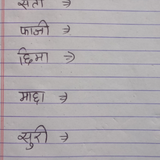 सती ⇒
फाजी ⇒
छिमा ⇒
माद्दा ⇒
सुरी ⇒